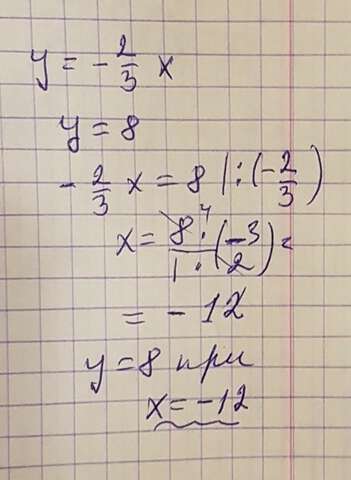 y = - 2/3 x
y = 8
- 2/3 x = 8 | : (- 2/3)
x = 8 · (-3) / 1 · 2 =
= - 12
y = 8 при
x = -12